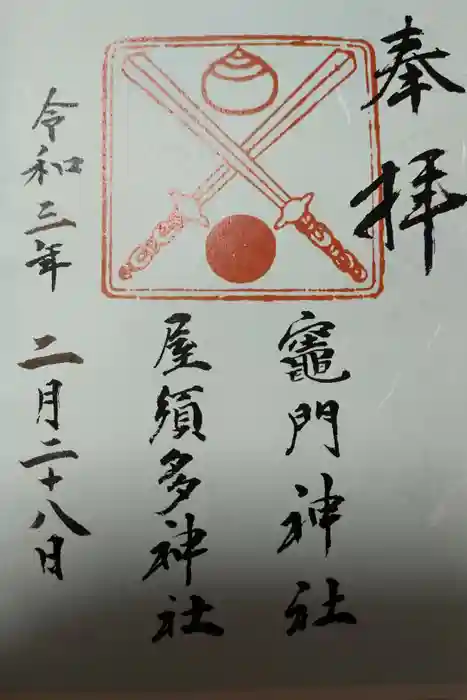 奉拝
竈門神社
屋須多神社
令和三年 二月二十八日